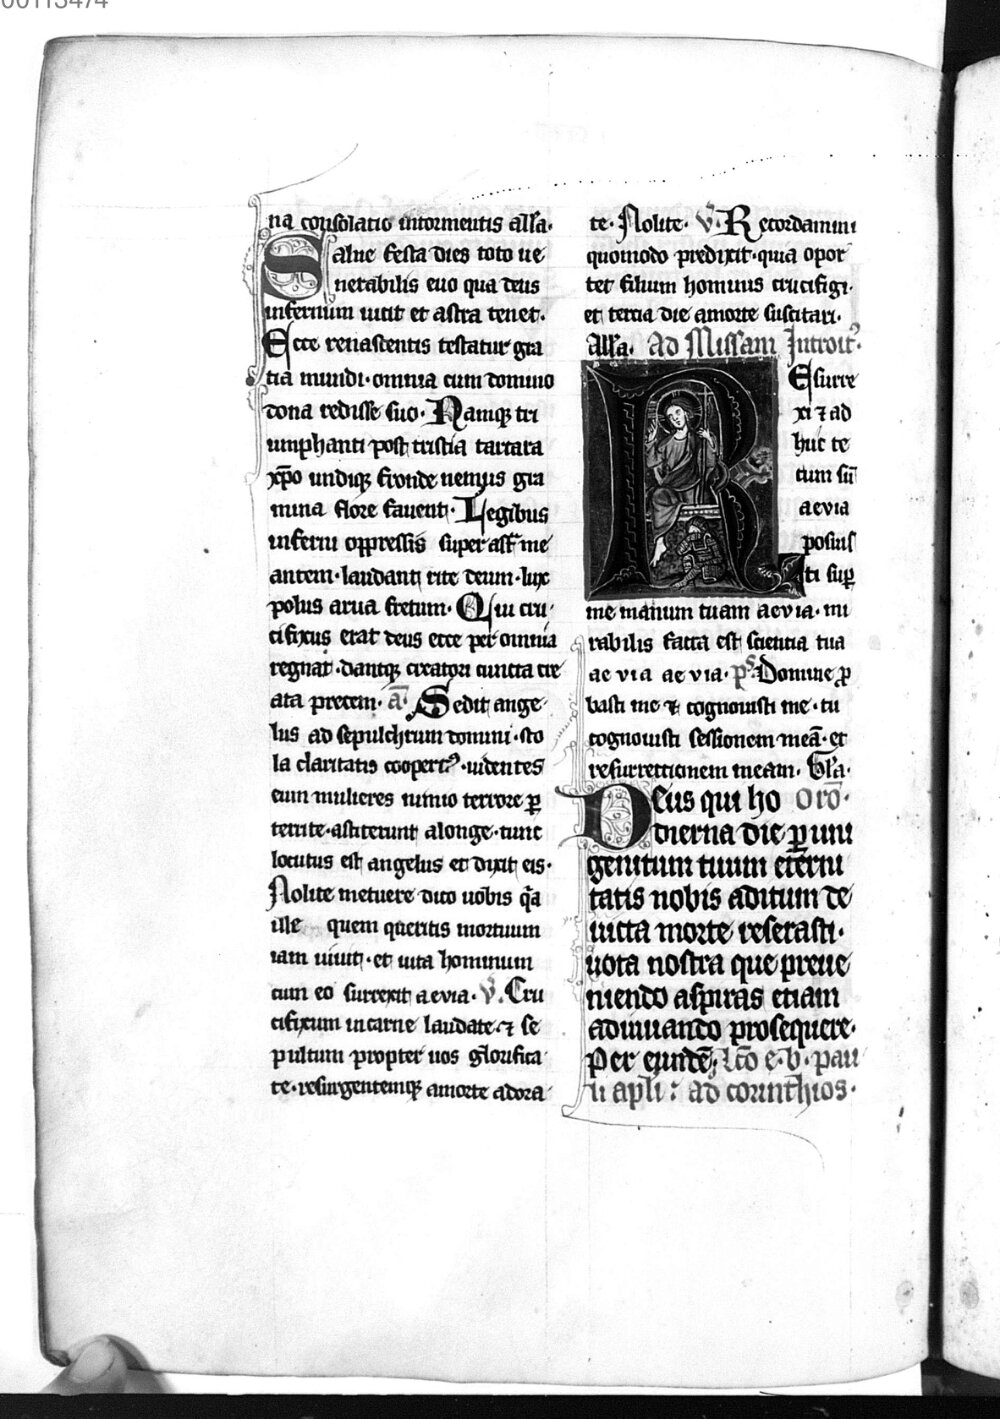 00113474
na consolatio intormentis alľa·
Salue festa dies toto ue
nerabilis euo qua deus
infernum uicit et astra tenet·
Ecce renascentis testatur gra
tia mundi·omnia cum domino
dona redisse suo· Namqꝫ tri
umphanti post tristia tartara
xp̄o undiqꝫ fronde nemus gra
mina flore fauent· Legibus
inferni oppressis super ast̄ me
antem·laudant rite deum·lux
polus arua fretum· Qui cru
cifixus erat deus ecce per omnia
regnat·dantqꝫ creatori cuncta cre
ata precem· a͞· Sedit ange
lus ad sepulchrum domini·sto
la claritatis coopertꝰ·uidentes
eum mulieres nimio terrore ꝑ
territe·astiterunt alonge·tunc
locutus est angelus et dixit eis·
Nolite metuere dico uobis q̄a
ille quem queritis mortuum
iam uiuit·et uita hominum
cum eo surrexit aevia· v̄. Cru
cifixum incarne laudate·⁊ se
pultum propter uos glorifica
te·resurgentemqꝫ amorte adora
te· Nolite· v̄· Recordamini
quomodo predixit·quia opor
tet filium hominis crucifigi·
et tercia die amorte suscitari·
Alľa· Ad Missam Introitꝰ·
Resurre
xi ⁊ ad
huc te
cum sū
aevia
posuis
ti suꝑ
me manum tuam aevia·mi
rabilis facta est scientia tua
aevia aevia· p̄s Domine ꝓ
basti me ⁊ cognouisti me·tu
cognouisti sessionem meā·et
resurrectionem meam· Gľa·
Deus qui ho Orō·
dierna die ꝑ uni
genitum tuum eterni
tatis nobis aditum de
uicta morte reserasti·
uota nostra que preue
niendo aspiras etiam
adiuuando prosequere·
Per eundē· Lc̄o e·b·pau
li apľi: ad corinthios·